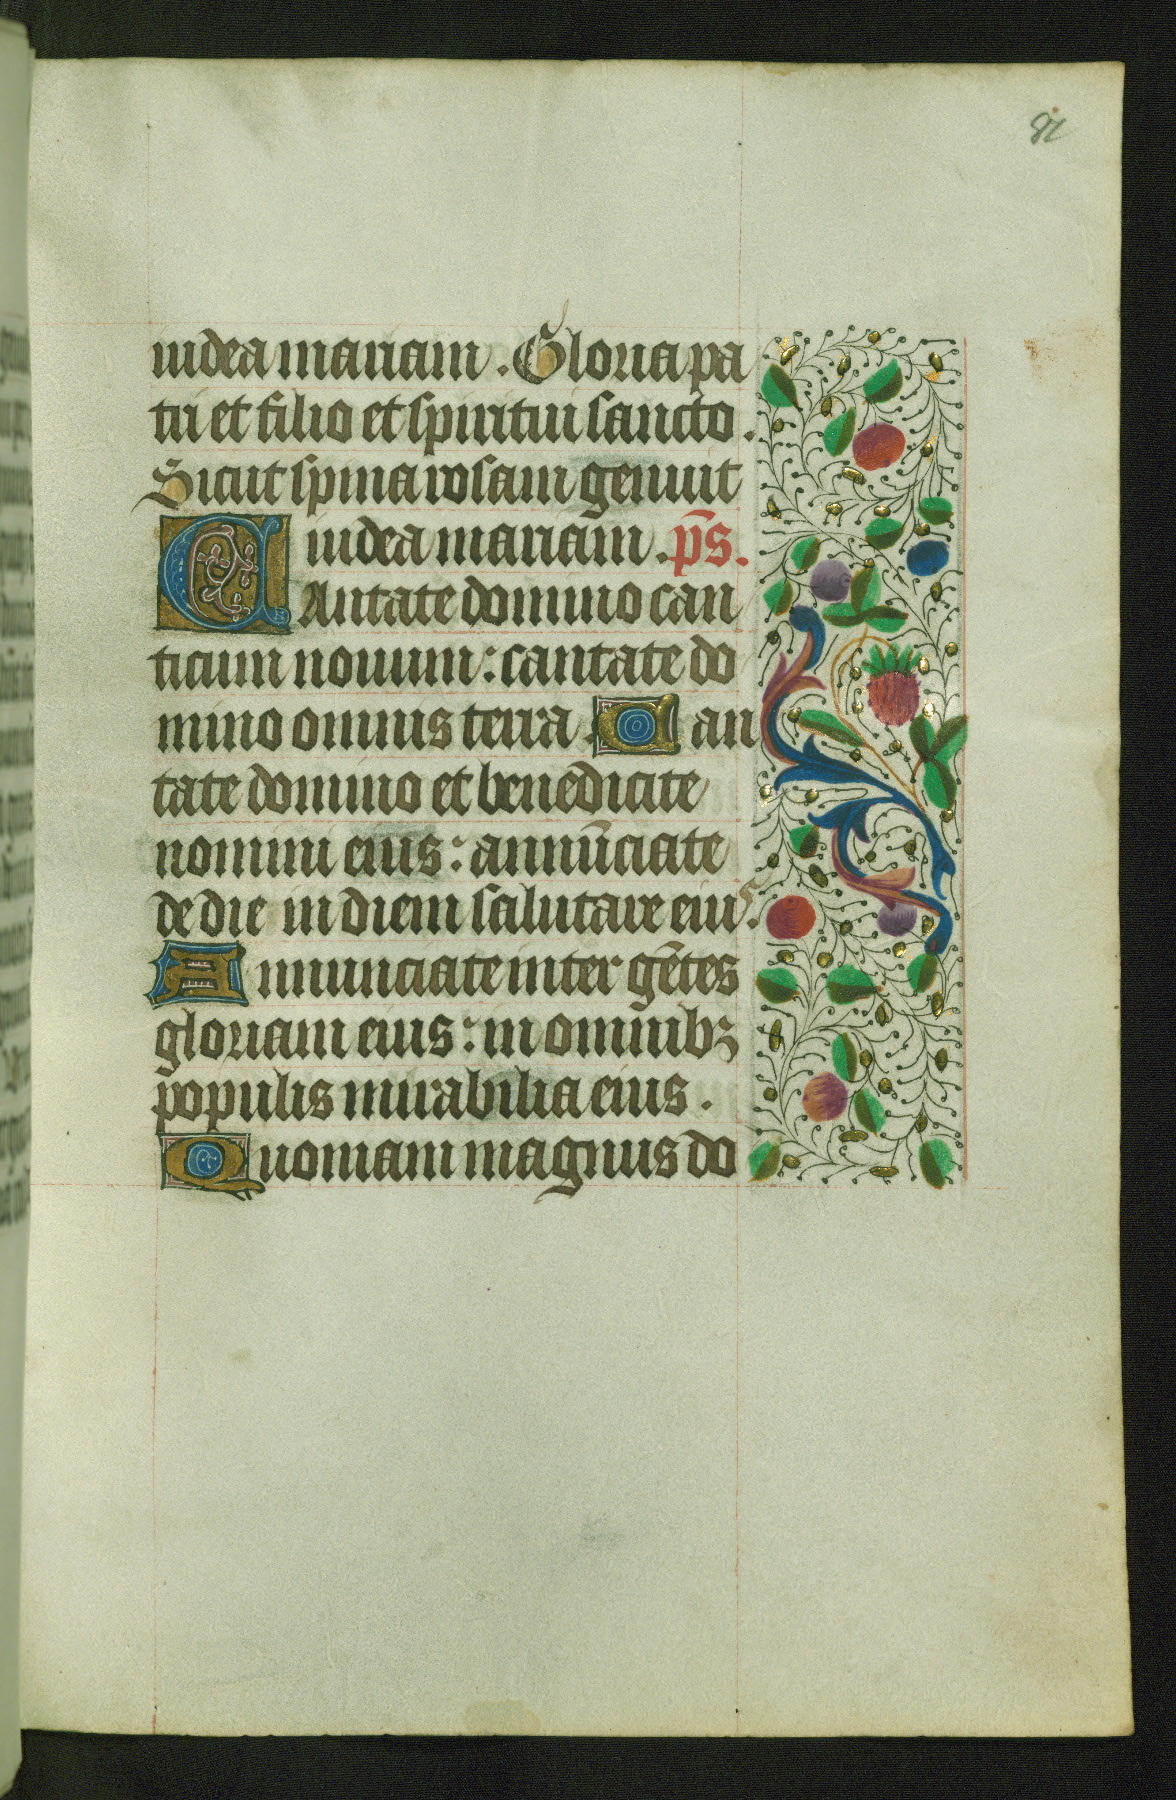 82
iudea mariam. Gloria pa
tri et filio et spiritui sancto.
Sicut spina rosam genuit
iudea mariam. p̄s.
CAntate domino can
ticum nouum: cantate do
mino omnis terra. Can
tate domino et benedicite
nomini eius: annūciate
de die in diem salutare eius.
Annunciate inter gētes
gloriam eius: in omnibꝫ
populis mirabilia eius.
Quoniam magnus do